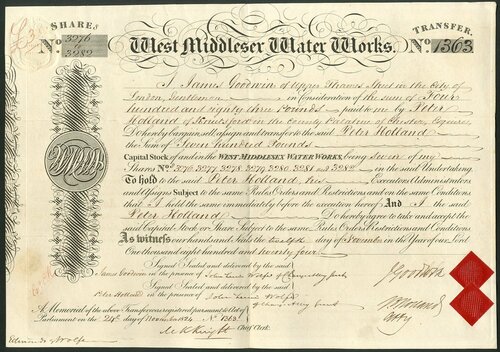 SHARES
TRANSFER.
No. 3276
a
3282
West Middlesex Water Works.
No. 1363
I James Goodwin of Upper Thames Street in the City of
London, Gentleman in consideration of the sum of Four
hundred and eighty three Pounds paid to me by Peter
Holland of Knutsford in the County Palatine of Chester, Esquire
Do hereby bargain, sell, assign and transfer to the said Peter Holland
the Sum of Seven hundred Pounds
Capital Stock of and in the WEST MIDDLESEX WATER WORKS, being Seven of my
Shares Nos. 3276, 3277, 3278, 3279, 3280, 3281 and 3282 in the said Undertaking.
To hold to the said Peter Holland, his Executors, Administrators
and Assigns Subject to the same Rules, Orders and Restrictions and on the same Conditions
that I held the same immediately before the execution hereof And I the said
Peter Holland Do hereby agree to take and accept the
said Capital Stock or Share Subject to the same Rules, Orders, Restrictions and Conditions
As witness our hands and Seals the twelfth day of November in the Year of our Lord
One thousand eight hundred and twenty four.
Signed Sealed and delivered by the said
James Goodwin in the presence of John Lewis Wolfe
J Goodwin
Signed Sealed and delivered by the said
Peter Holland in the presence of John Lewis Wolfe
P Holland
A Memorial of the above Transfer was registered pursuant to Act of
Parliament on the 24th day of November 1824 No. 1363
M K Knight Chief Clerk.